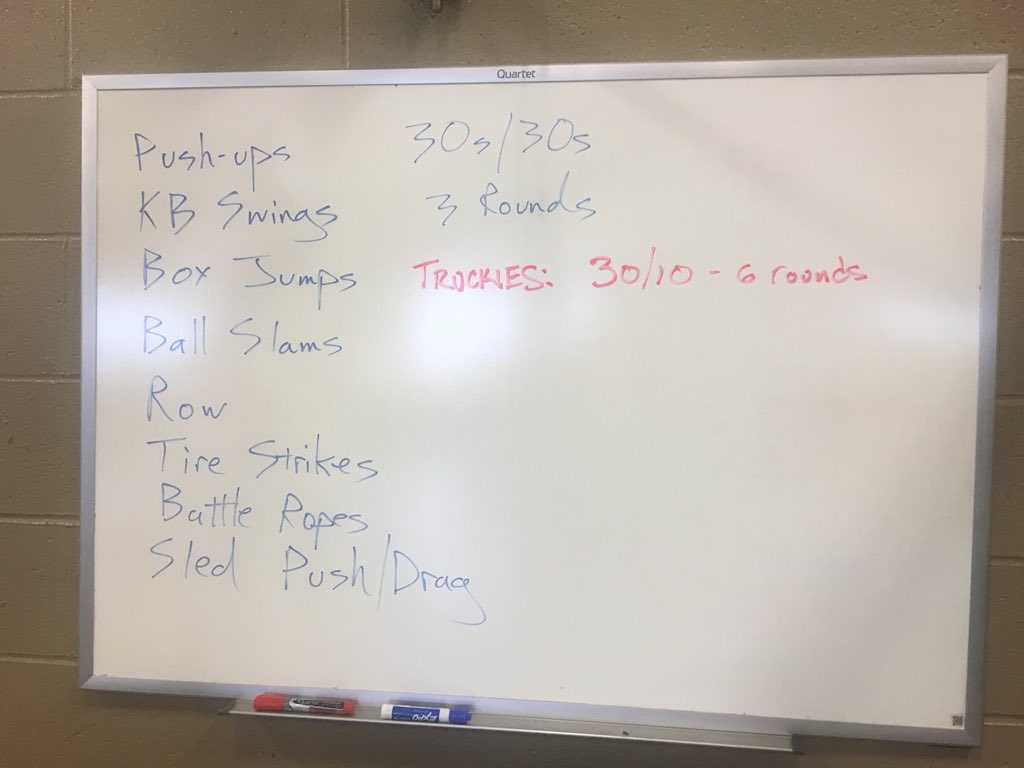 Quartet
Push-ups 30s/30s
KB Swings 3 Rounds
Box Jumps TROCKIES: 30/10 - 6 rounds
Ball Slams
Row
Tire Strikes
Battle Ropes
Sled Push/Drag
EXPO